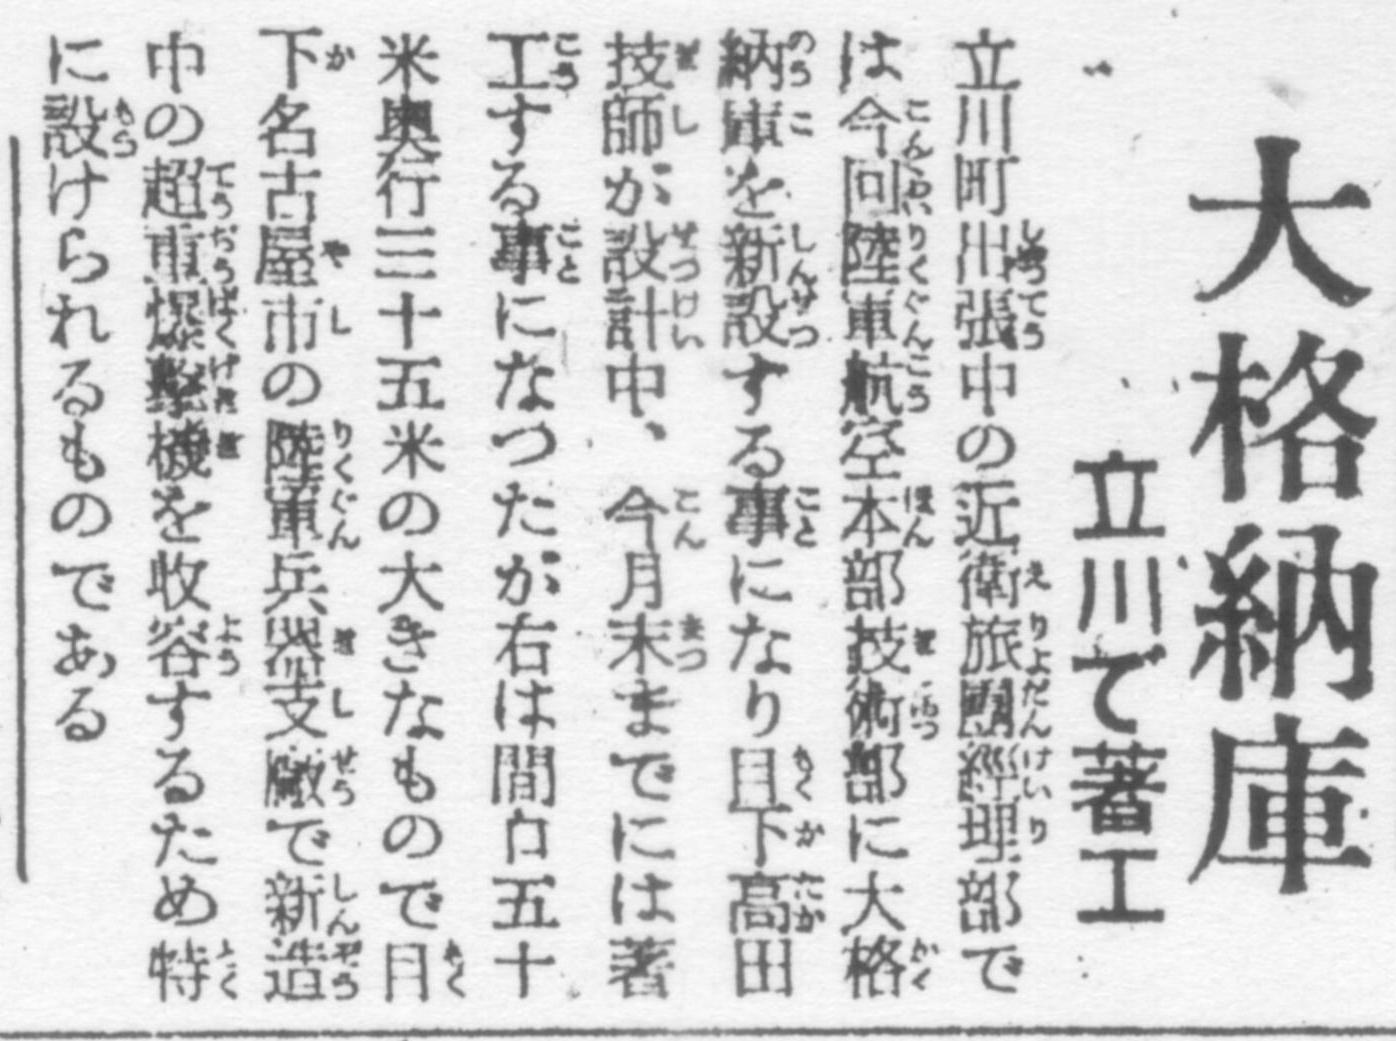 大格納庫
立川で著工
立川町出張中の近衛旅團經理部で
は今回陸軍航空本部技術部に大格
納庫を新設する事になり目下高田
技師が設計中、今月末までには著
工する事になつたが右は間口五十
米奥行三十五米の大きなもので目
下名古屋市の陸軍兵器支廠で新造
中の超重爆撃機を收容するため特
に設けられるものである